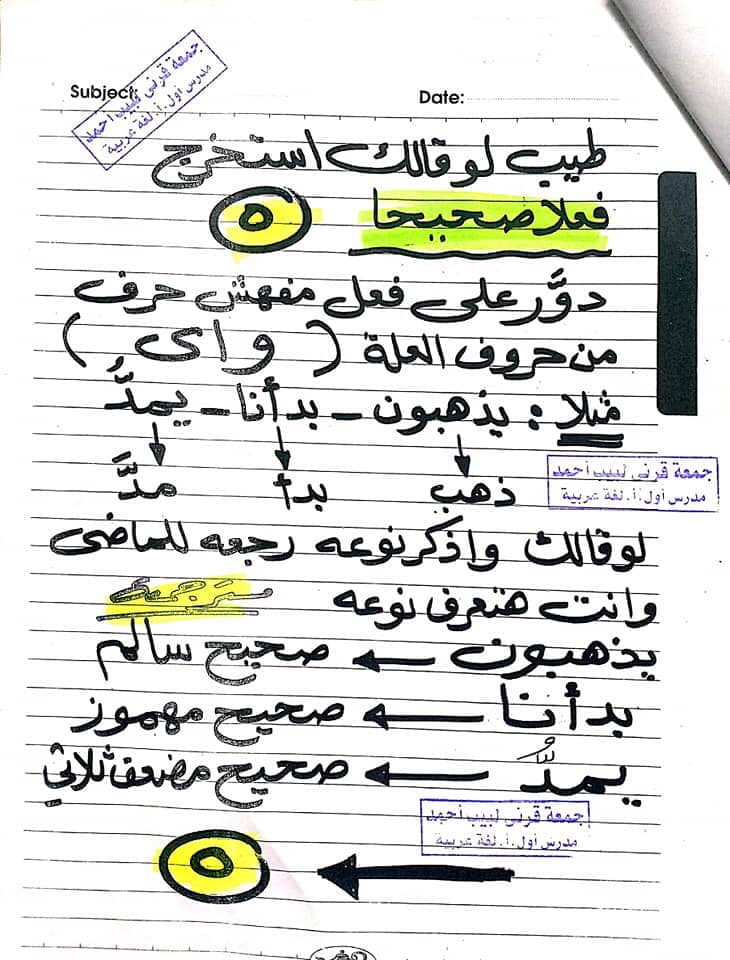 جمعة قرنى لبيب احمد
مدرس أول.أ. لغة عربية
Subject:
Date:
طيب لو قالك استخرج
فعلا صحيحا ٥
دوَّر على فعل مفهش حرف
من حروف العلة ( و ا ى )
مثلا : يذهبون - بدأنا - يمدُّ
ذهب بدأ مدَّ
جمعة قرنى لبيب احمد
مدرس أول.أ. لغة عربية
لو قالك واذكر نوعه رجعه للماضى
وانت هتعرف نوعه
يذهبون ← صحيح سالم
بدأنا ← صحيح مهموز
يمدُّ ← صحيح مضعف ثلاثي
جمعة قرنى لبيب احمد
مدرس أول.أ. لغة عربية
← ٥